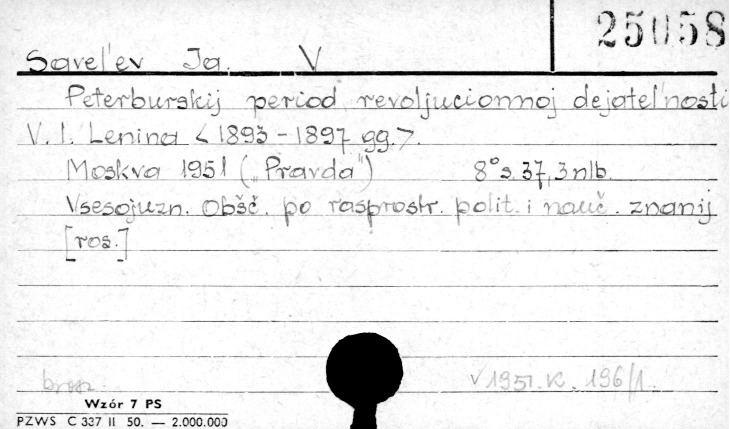 25058
Savel'ev Ja. V
Peterburskij period revoljucionnoj dejatel'nosti
V. I. Lenina <1893-1897 gg.>.
Moskva 1951 („Pravda") 8° s. 37, 3 nlb.
Vsesojuzn. Obšč. po rasprostr. polit. i nauč. znanij
[ros.]
brosz.
V 1951. K. 196/1.
Wzór 7 PS
PZWS C 337 II 50. — 2.000.000